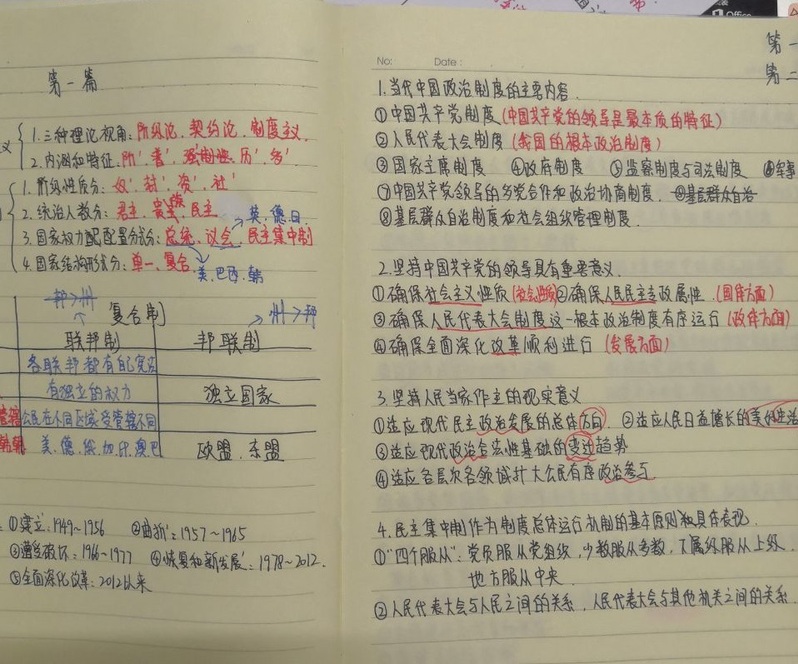 第一篇
1.三种理论视角:阶级论、契约论、制度主义
2.内涵和特征:阶'、书'、强制性、历'、多'
1.阶级性质分:奴'、封'、资'、社'
2.统治人数分:君主、贵族、民主
英、德、日
3.国家权力配置分式分:总统、议会、民主集中制
4.国家结构形式分:单一、复合
美、巴西、韩
邦>州
复合制
州>邦
联邦制 邦联制
各联邦都有自己宪法
有独立的权力 独立国家
公民在不同区域受管辖不同
美、德、俄、加、印、澳、巴 欧盟、东盟
①建立:1949~1956 ②曲折':1957~1965
③遭受破坏:1966~1977 ④恢复和新发展':1978~2012.
⑤全面深化改革:2012以来
Office
No: Date:
第一
第二
1.当代中国政治制度的主要内容.
①中国共产党制度(中国共产党的领导是最本质的特征)
②人民代表大会制度(我国的根本政治制度)
③国家主席制度 ④政府制度 ⑤监察制度与司法制度 ⑥军事
⑦中国共产党领导的多党合作和政治协商制度. ⑧基层群众自治
⑧基层群众自治制度和社会组织管理制度.
2.坚持中国共产党的领导具有重要意义.
①确保社会主义性质(社会性质)②确保人民民主专政属性.(国体方面)
③确保人民代表大会制度这一根本政治制度有序运行(政体方面)
④确保全面深化改革顺利进行(发展方面)
3.坚持人民当家作主的现实意义
①适应现代民主政治发展的总体方向. ②适应人民日益增长的美好生活
③适应现代政治合法性基础的变迁趋势
④适应各层次各领域扩大公民有序政治参与
4.民主集中制作为制度总体运行机制的基本原则和具体表现.
①"四个服从":党员服从党组织,少数服从多数,下属级服从上级.
地方服从中央.
②人民代表大会与人民之间的关系.人民代表大会与其他机关之间的关系.